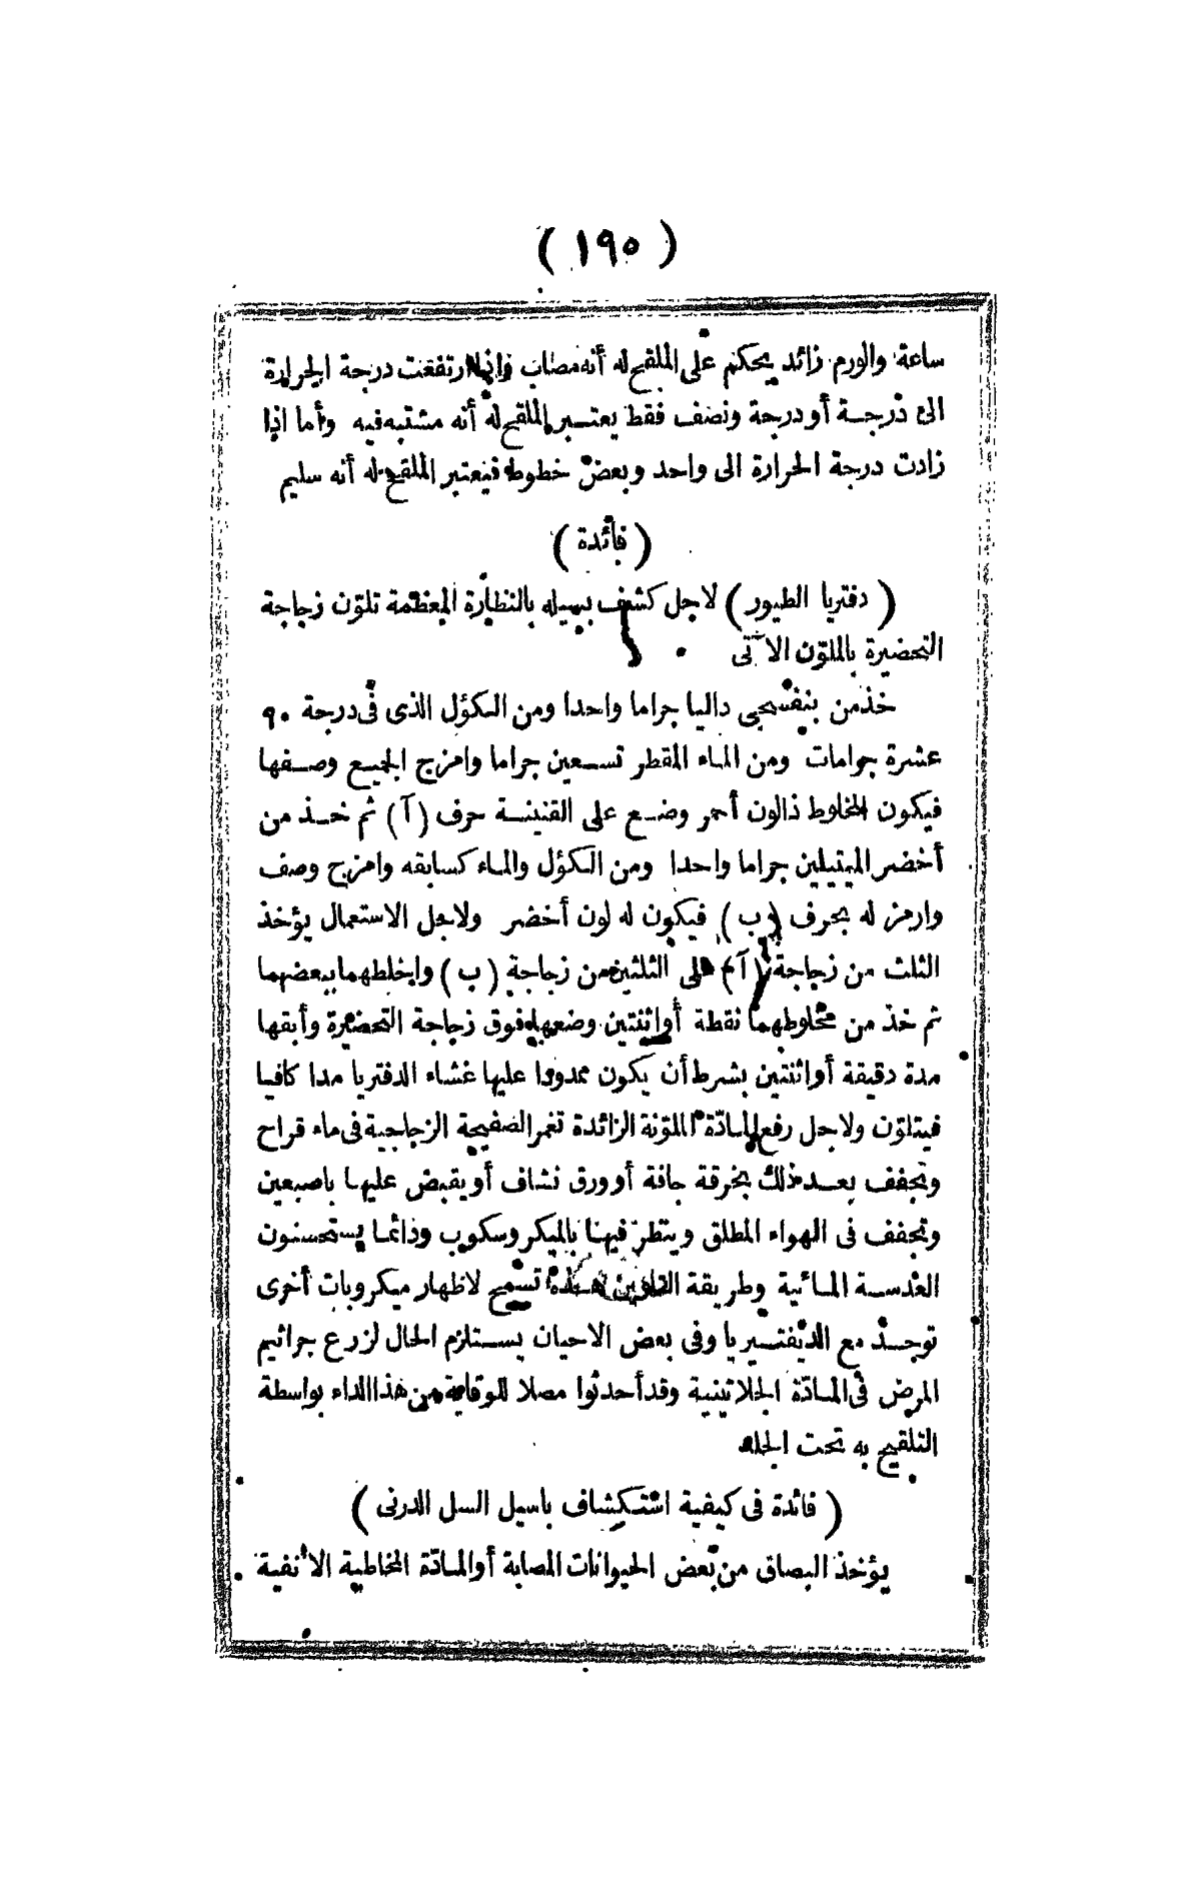 ( ١٩٥ )
ساعة والورم زائد يحكم على الملقح له أنه مصاب واذا ارتفعت درجة الحرارة
الى درجة أو درجة ونصف فقط يعتبر الملقح له أنه مشتبه فيه وأما اذا
زادت درجة الحرارة الى واحد وبعض خطوط فيعتبر الملقح له أنه سليم
( فائدة )
( دفتريا الطيور ) لاجل كشف بسيله بالنظارة المعظمة تلوّن زجاجة
التحضيرة بالملوّن الآتى
خذ من بنفسجى داليا جراما واحدا ومن الكؤل الذى فى درجة ٩٠
عشرة جرامات ومن الماء المقطر تسعين جراما وامزج الجميع وصفها
فيكون المخلوط ذا لون أحمر وضع على القنينة حرف (آ) ثم خذ من
أخضر الميتيلين جراما واحدا ومن الكؤل والماء كسابقه وامزج وصف
وارمز له بحرف (ب) فيكون له لون أخضر ولاجل الاستعمال يؤخذ
الثلث من زجاجة (آ) على الثلثين من زجاجة (ب) واخلطهما ببعضهما
ثم خذ من مخلوطهما نقطة أو اثنتين وضعها فوق زجاجة التحضيرة وأبقها
مدة دقيقة أو اثنتين بشرط أن يكون ممدودا عليها غشاء الدفتريا مدا كافيا
فيتلوّن ولاجل رفع المادّة الملوّنة الزائدة تغمر الصفيحة الزجاجية فى ماء قراح
وتجفف بعد ذلك بخرقة جافة أو ورق نشاف أو يقبض عليها باصبعين
وتجفف فى الهواء المطلق وينظر فيها بالميكروسكوب ودائما يستحسنون
العدسة المائية وطريقة التلوين هذه تسمح لاظهار ميكروبات أخرى
توجد مع الديفتيريا وفى بعض الاحيان يستلزم الحال لزرع جراثيم
المرض فى المادّة الجلاتينية وقد أحدثوا مصلا للوقاية من هذا الداء بواسطة
التلقيح به تحت الجلد
( فائدة فى كيفية استكشاف باسيل السل الدرنى )
يؤخذ البصاق من بعض الحيوانات المصابة أو المادّة المخاطية الانفية